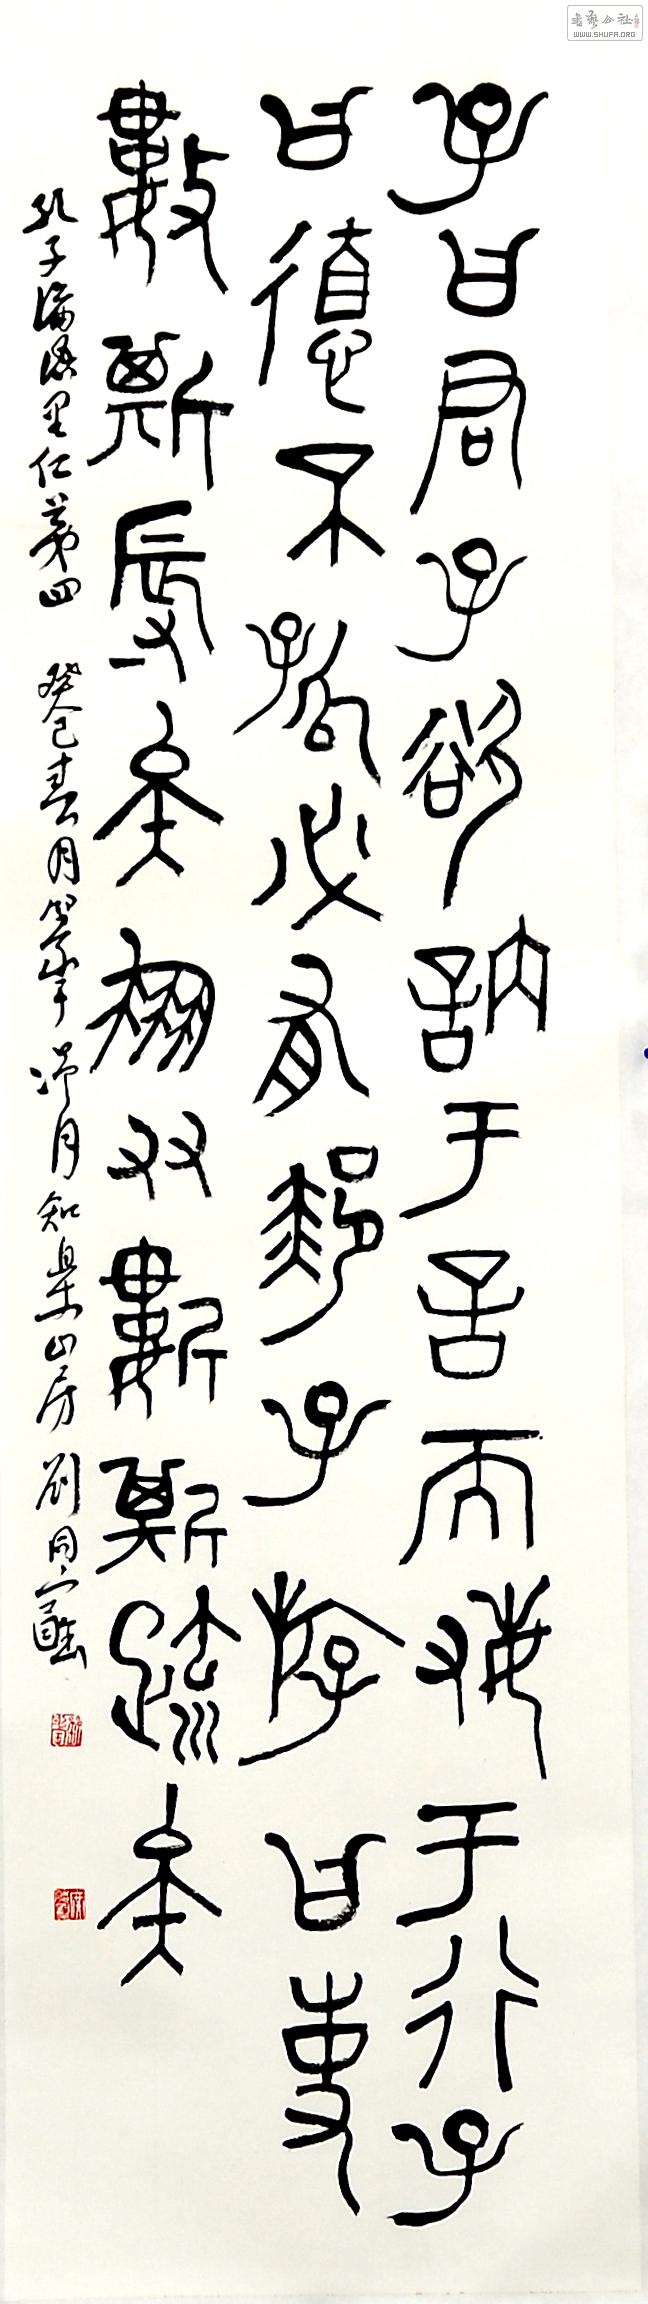 子曰君子欲訥于言而敏于行子
曰德不孤必有鄰子游曰事
數斯辱矣朋友數斯疏矣
孔子論語里仁第四 癸巳春月 月知樂山房 劉同
書藝公社
WWW.SHUFA.ORG